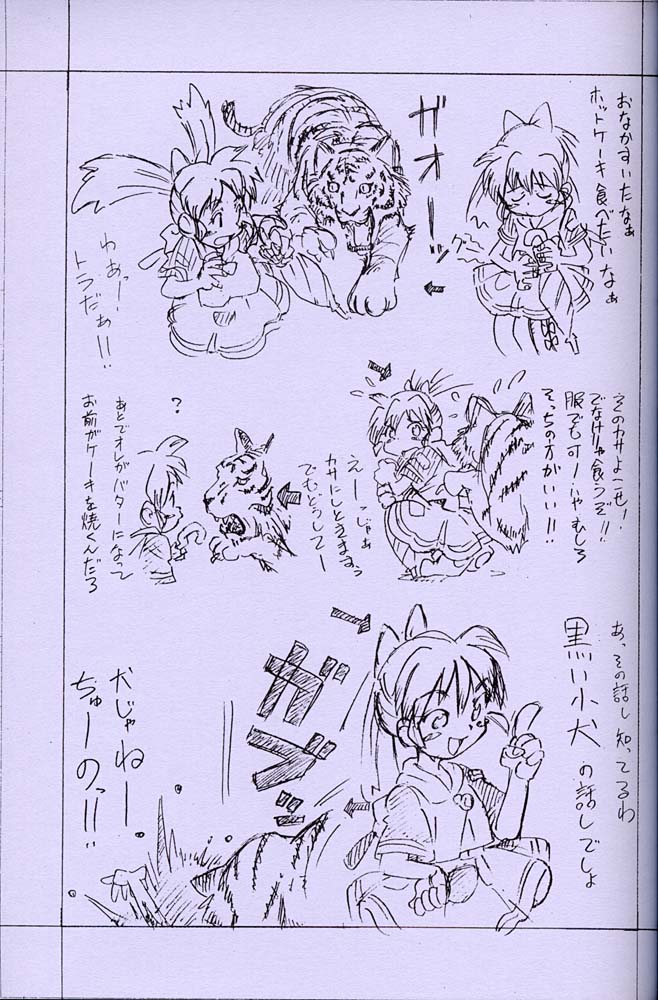 おなかすいたなぁ
ホットケーキ食べたいなぁ
グー
ガオー!
わぁっー、
トラだぁ!!
そのカサよこせ!
でなけりゃ食うぞ!!
服でも可!いやむしろ
そっちの方がいい!!
えーっじゃぁ
カサにしときますぅ
でもどうしてー
?
あとでオレがバターになって
お前がケーキを焼くんだろ
あ、その話し知ってるわ
黒い小犬
の話しでしょ
ガブッ
犬じゃねー。
ちゅーのっ!!